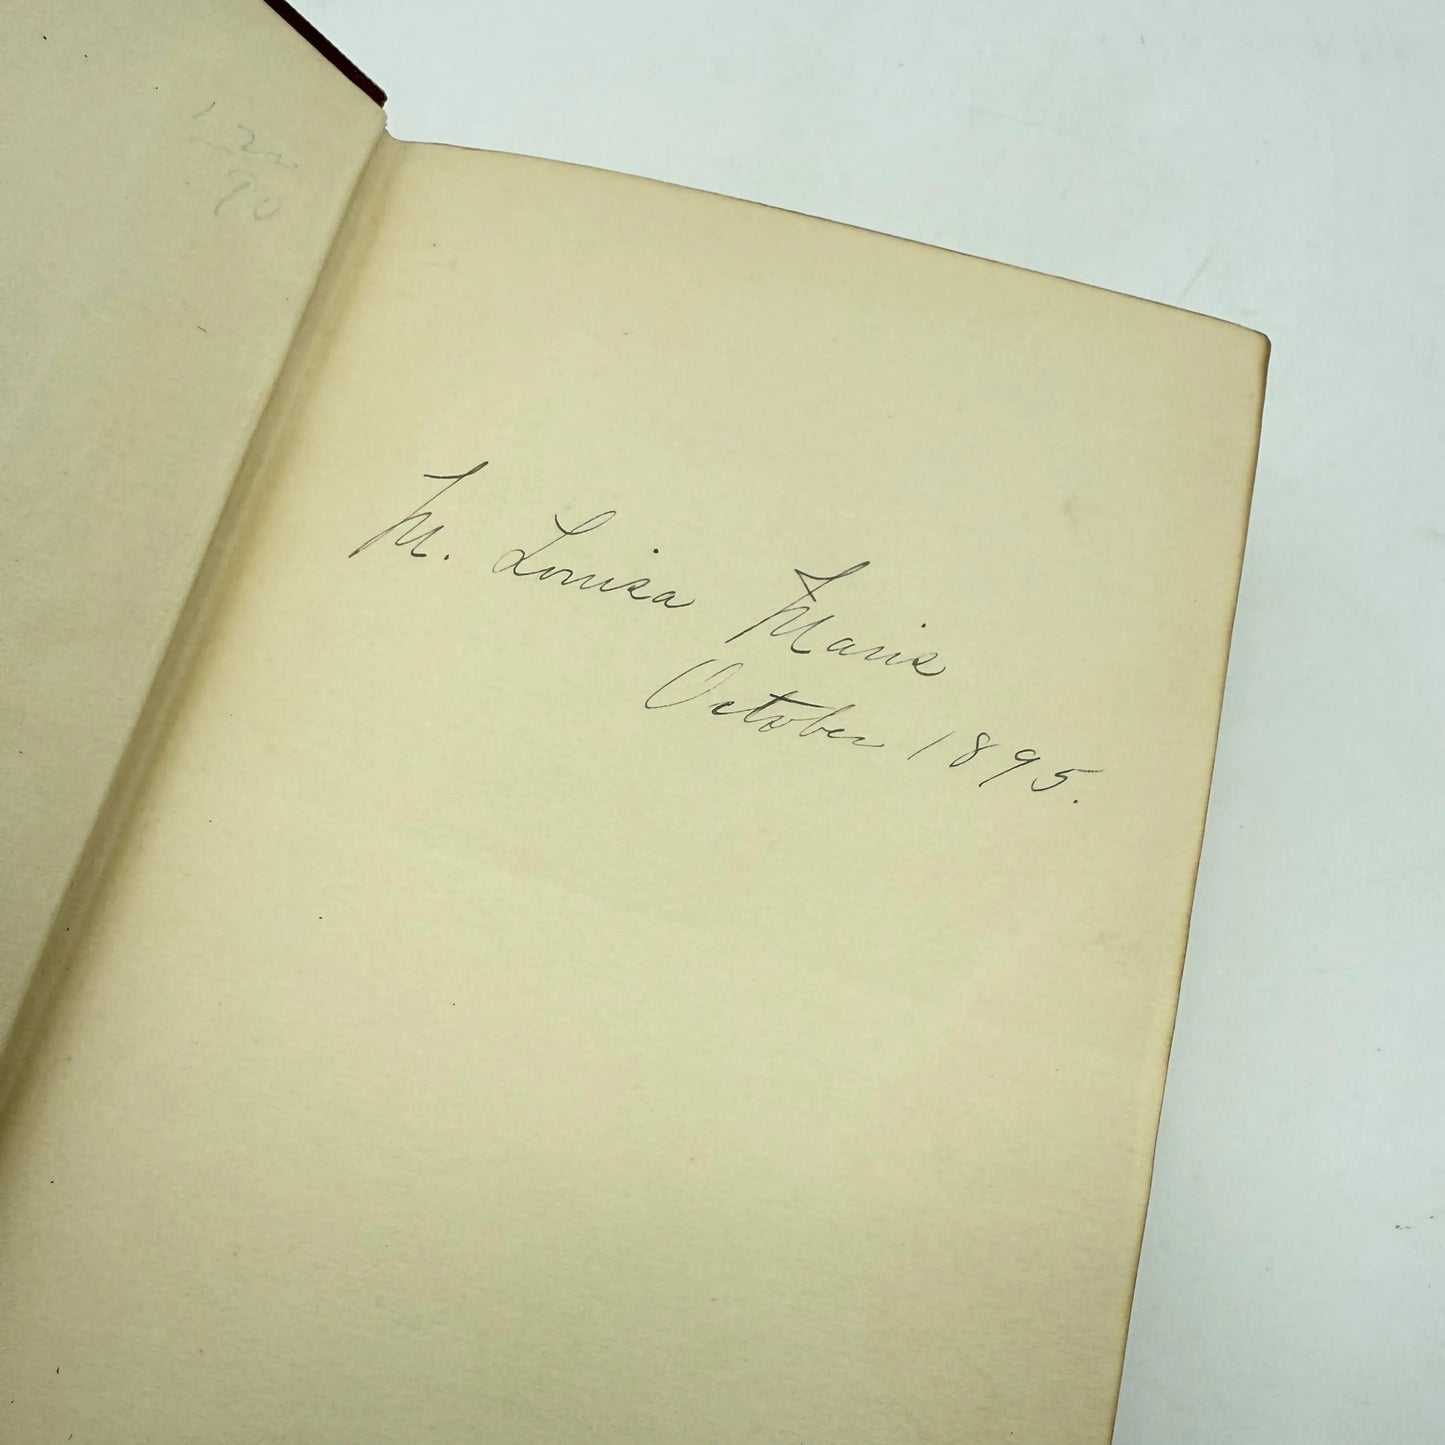 M. Louisa Maris
October 1895.